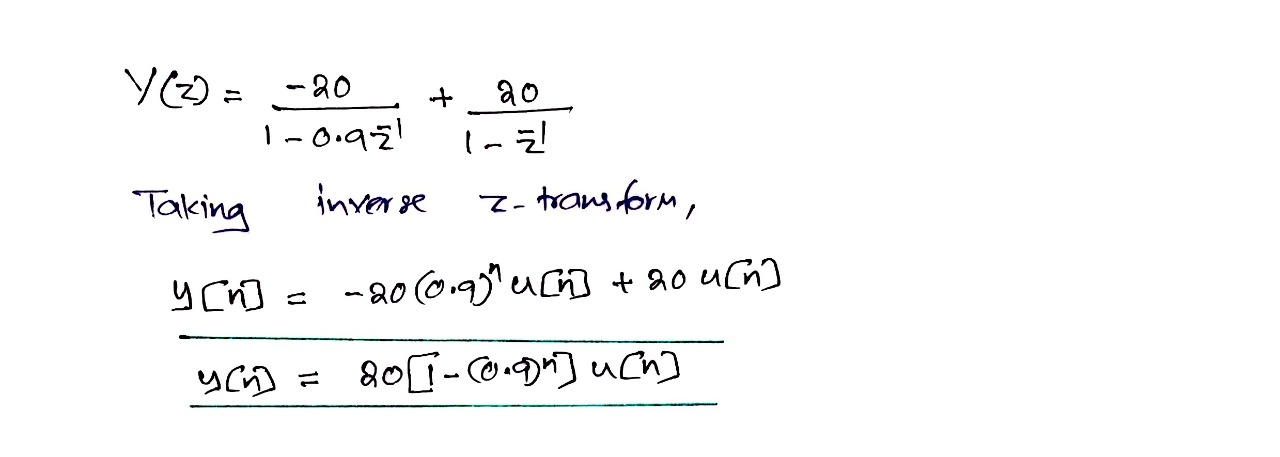 Y(z) = -20 / (1 - 0.9z⁻¹) + 20 / (1 - z⁻¹)
Taking inverse z-transform,
y[n] = -20(0.9)ⁿ u[n] + 20 u[n]
y[n] = 20[1 - (0.9)ⁿ] u[n]